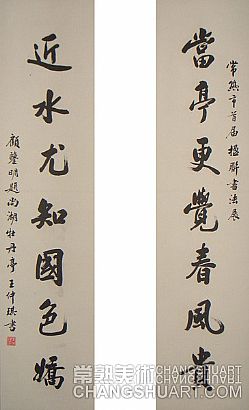 常熟市首届楹聯書法展
當亭更覺春風貴
近水尤知國色嬌
顧鑒明題尚湖牡丹亭王仲琪書
常熟美術
CHANGSHUART.COM